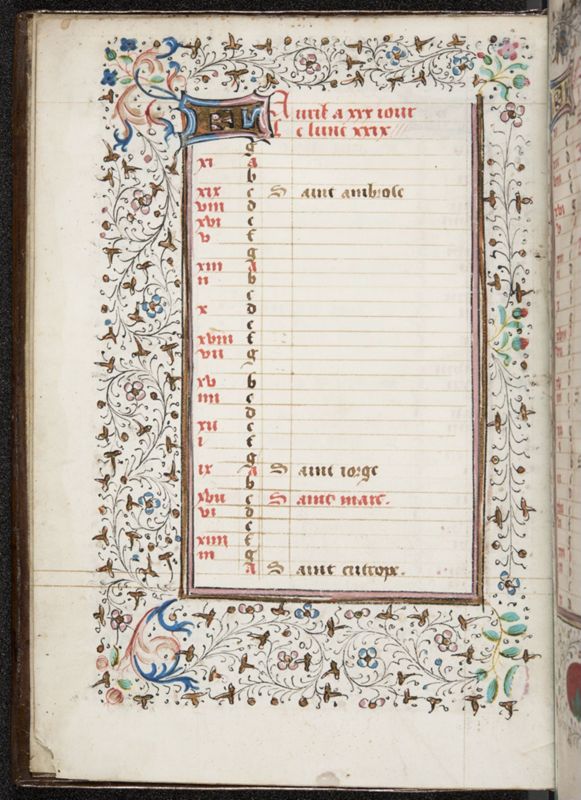 KL A uril a xxx iour
L e lune xxix
g
xi A
b
xix c S aint ambrose
viii d
xvi e
v f
g
xiii A
ii b
c
x d
e
xviii f
vii g
xv b
iiii c
d
xii e
i f
g
ix A S aint iorge
b
xvii c S aint marc.
vi d
e
xiiii f
iii g
A S aint eutrope.